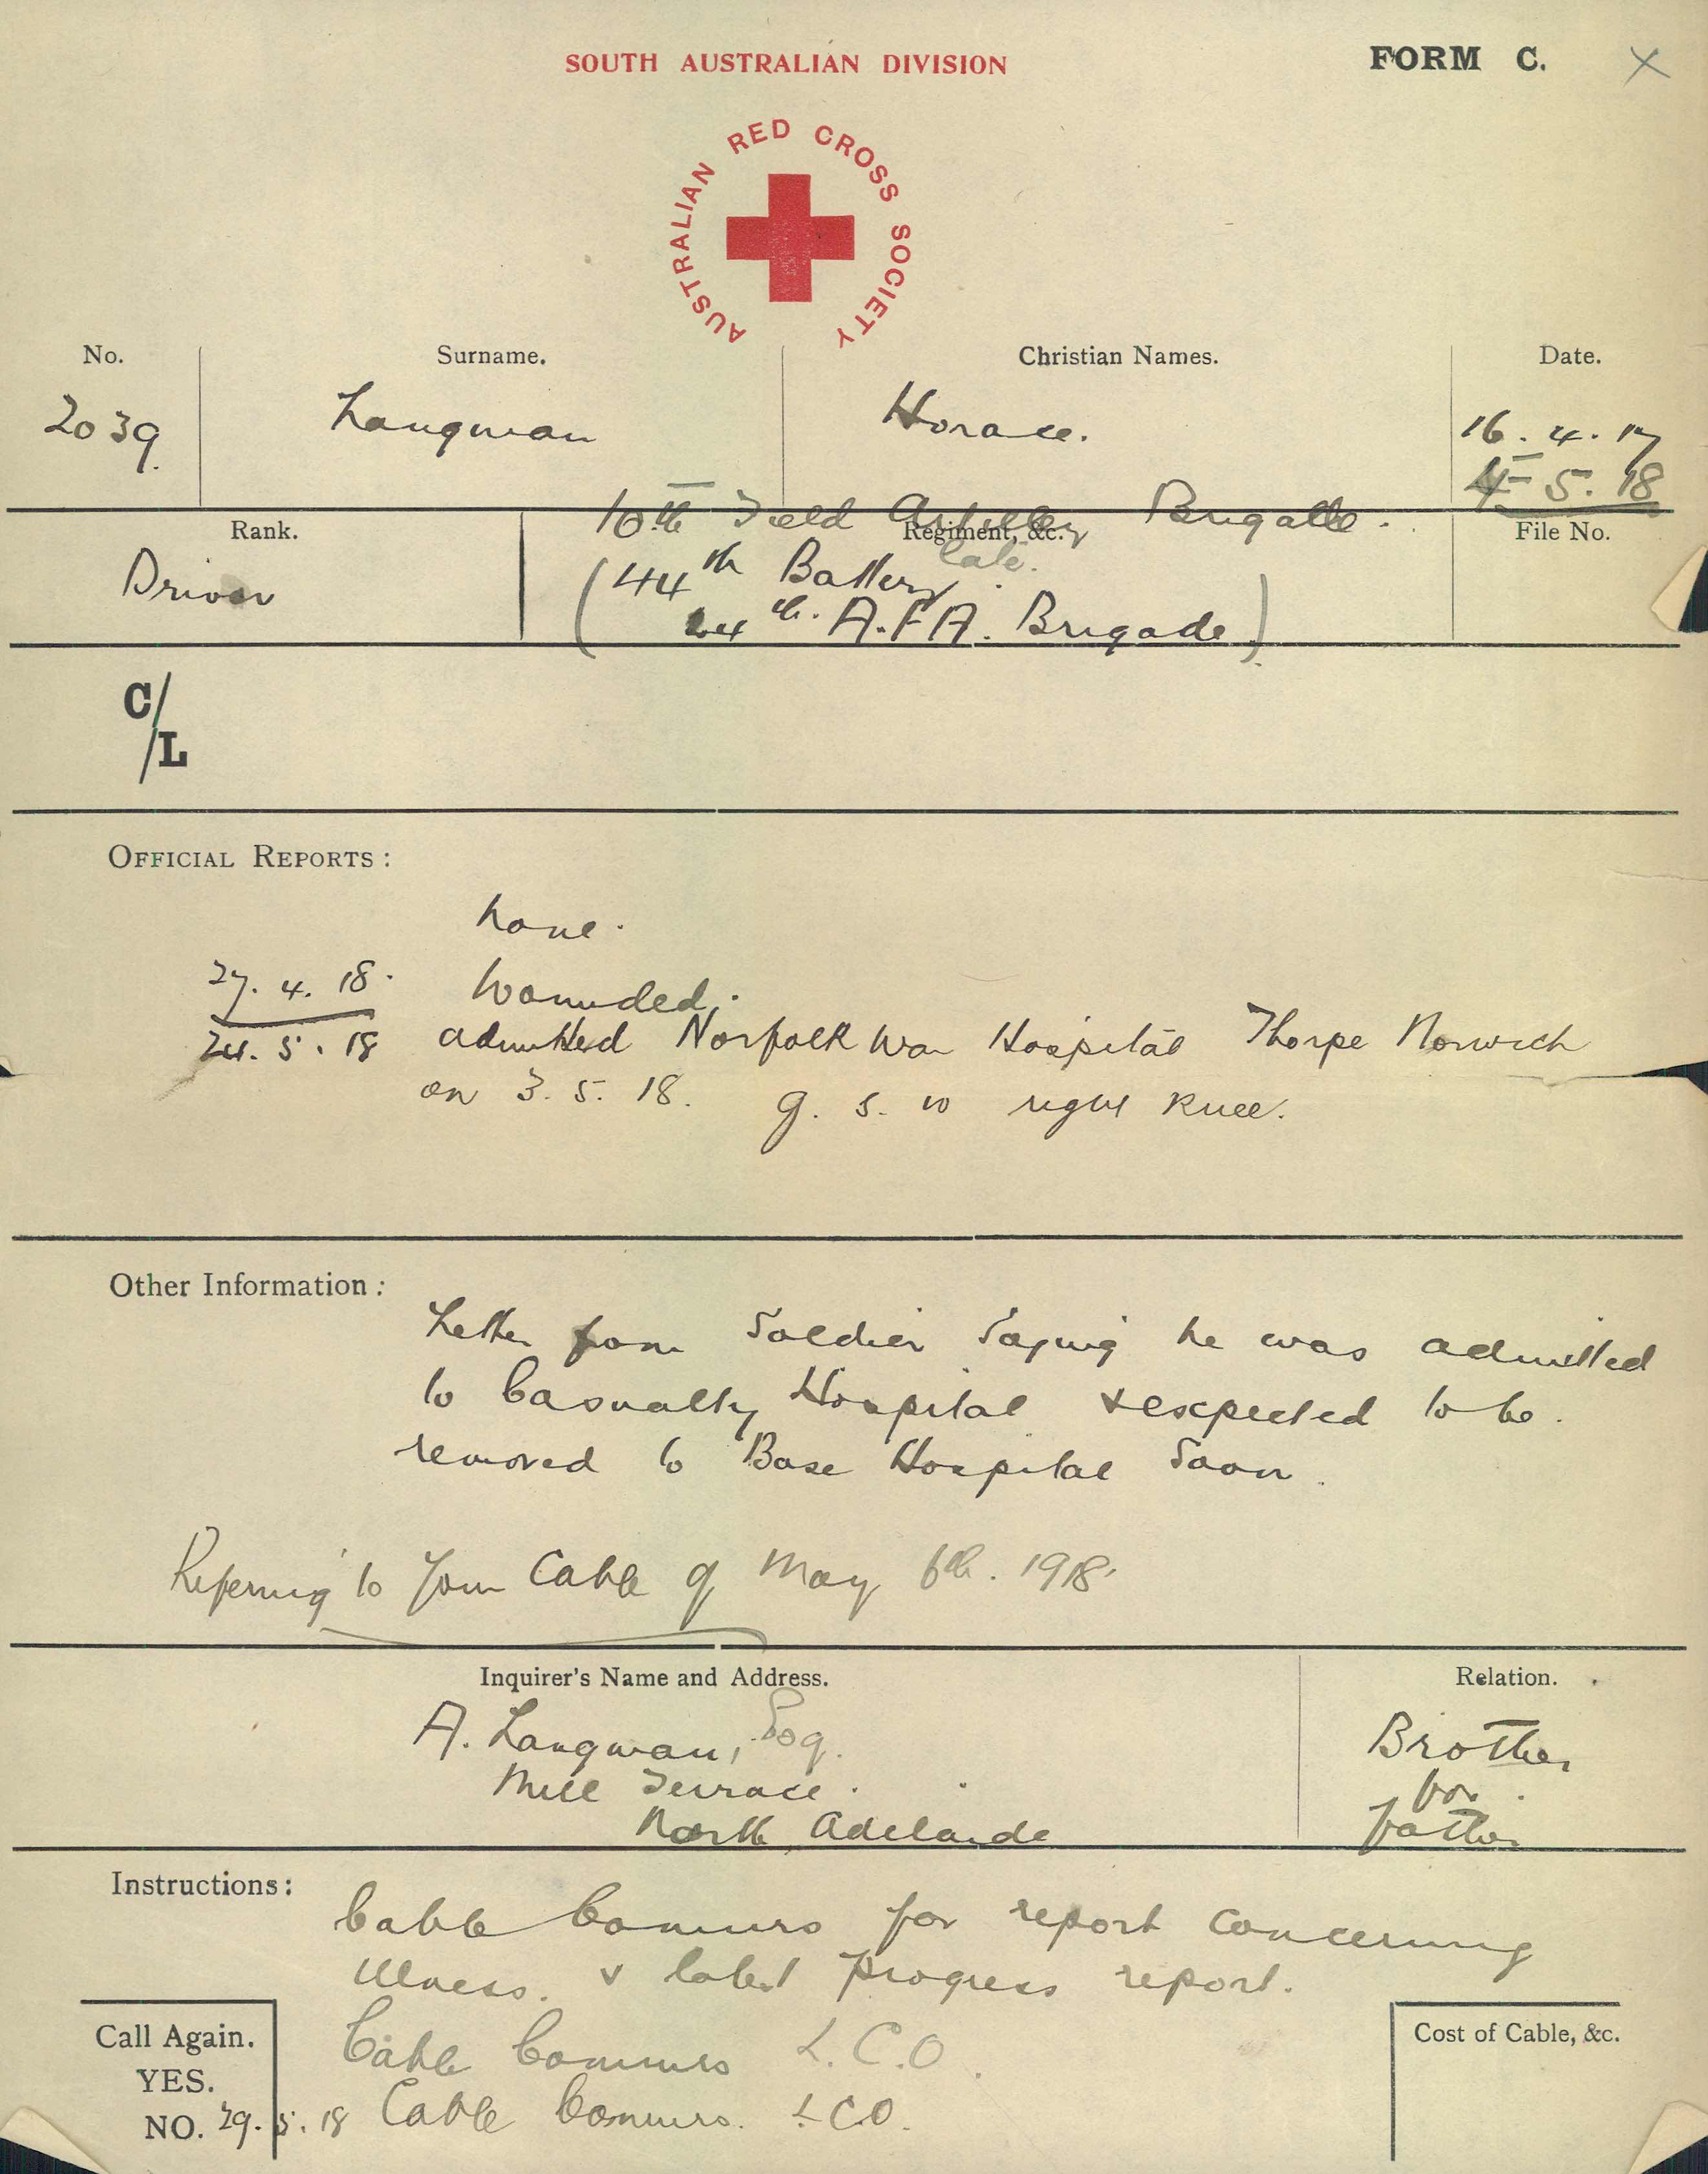 SOUTH AUSTRALIAN DIVISION
FORM C.
AUSTRALIAN RED CROSS SOCIETY
No.
Surname.
Christian Names.
Date.
2039.
Langman
Horace.
16. 4. 17
4 - 5. 18
Rank.
Regiment, &c.
File No.
10th Field Artillery Brigade.
Driver
late.
(44th Battery
24th. A.F.A. Brigade)
C/
/L
OFFICIAL REPORTS :
None.
27. 4. 18. Wounded.
24. 5. 18 admitted Norfolk War Hospital Thorpe Norwich
on 3. 5. 18. G. S. W right Knee.
Other Information :
Letter from Soldier Saying he was admitted
to Casualty Hospital & expected to be
removed to Base Hospital Soon.
Referring to Your Cable of May 6th. 1918.
Inquirer's Name and Address.
Relation.
A. Langman, Esq.
Brother
Mill Terrace.
for.
North Adelaide
father
Instructions :
Cable Commrs for report concerning
illness. & latest progress report.
Call Again.
YES.
NO.
Cable Commrs L.C.O.
29. 5. 18 Cable Commrs. L.C.O.
Cost of Cable, &c.